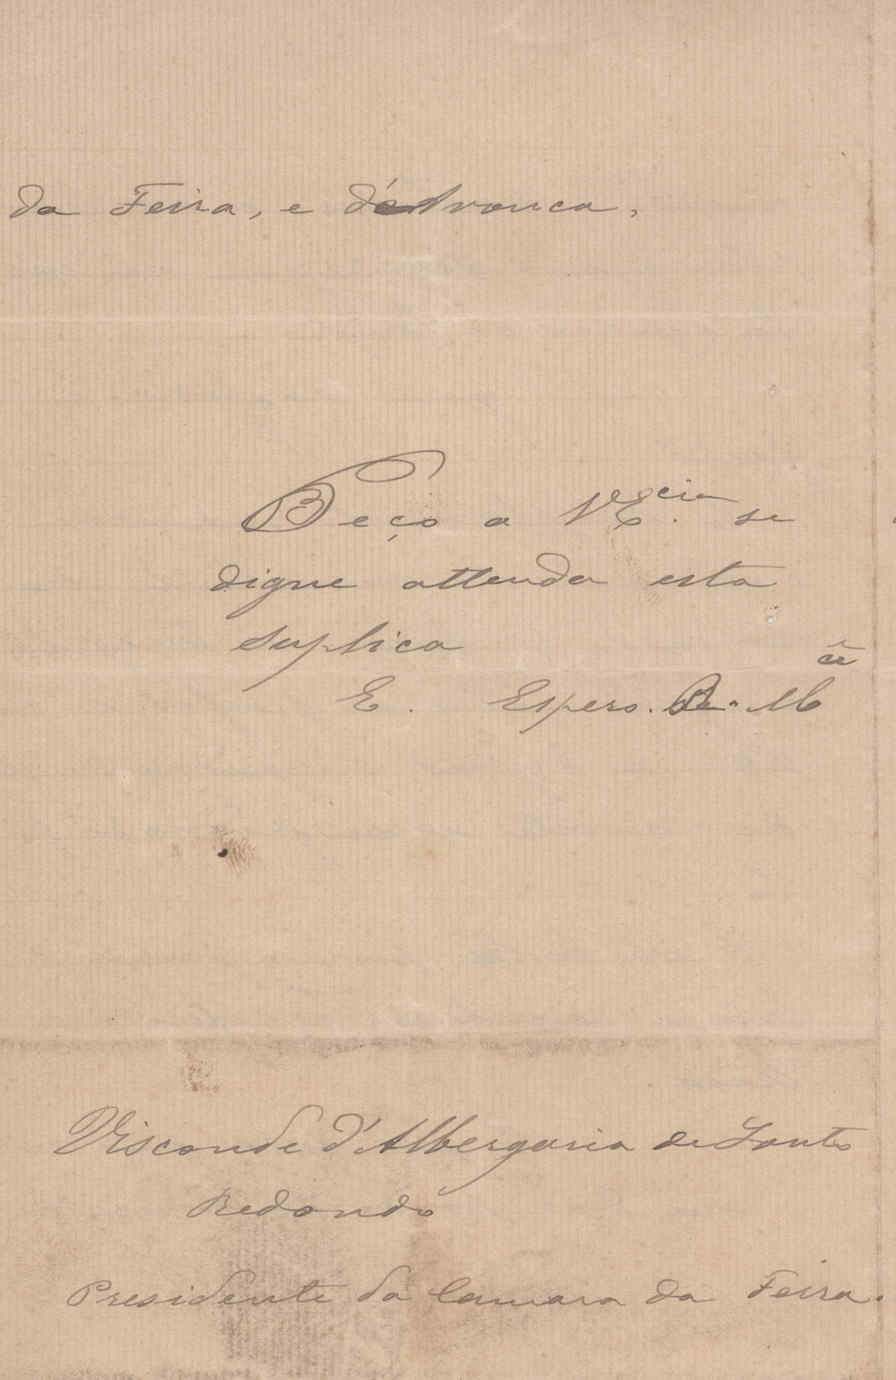 da Feira, e d'Arouca,
Peço a V Ecia. se
digne attender esta
suplica
E. Espero. R. Mcê
Visconde d'Albergaria de Souto
Redondo
Presidente da Camara da Feira.